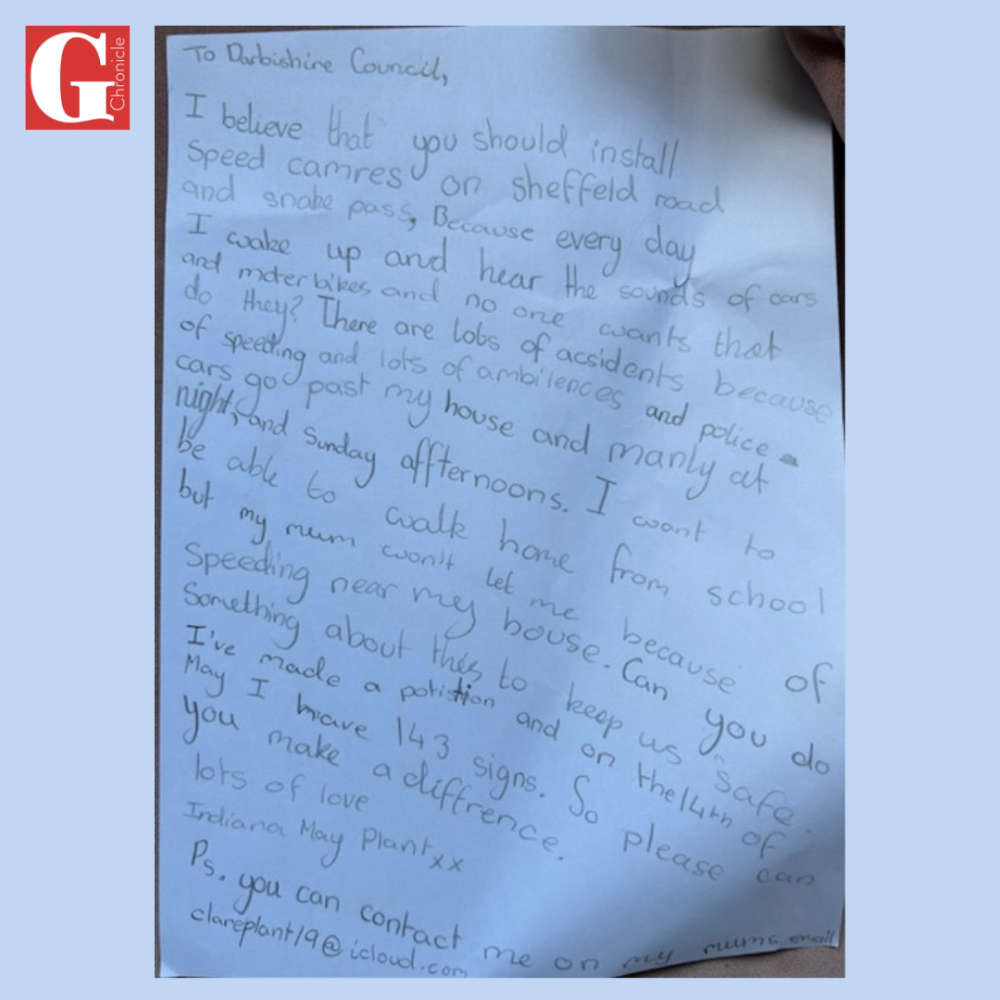 G Chronicle
To Darbishire Council,
I believe that you should install
Speed camres on sheffeld road
and snake pass, Because every day
I wake up and hear the sounds of cars
and moterbikes and no one wants that
do they? There are lobs of assidents because
of speeding and lots of ambilences and police
cars go past my house and manly at
night, and Sunday affternoons. I want to
be able to walk home from school
but my mum won't let me because of
Speeding near my house. Can you do
Something about this to keep us safe.
I've made a potistion and on the 14th of
May I have 143 signs. So please can
you make a diffrence.
lots of love
Indiana May Plant xx
Ps. you can contact me on my mums email
clareplant19@icloud.com